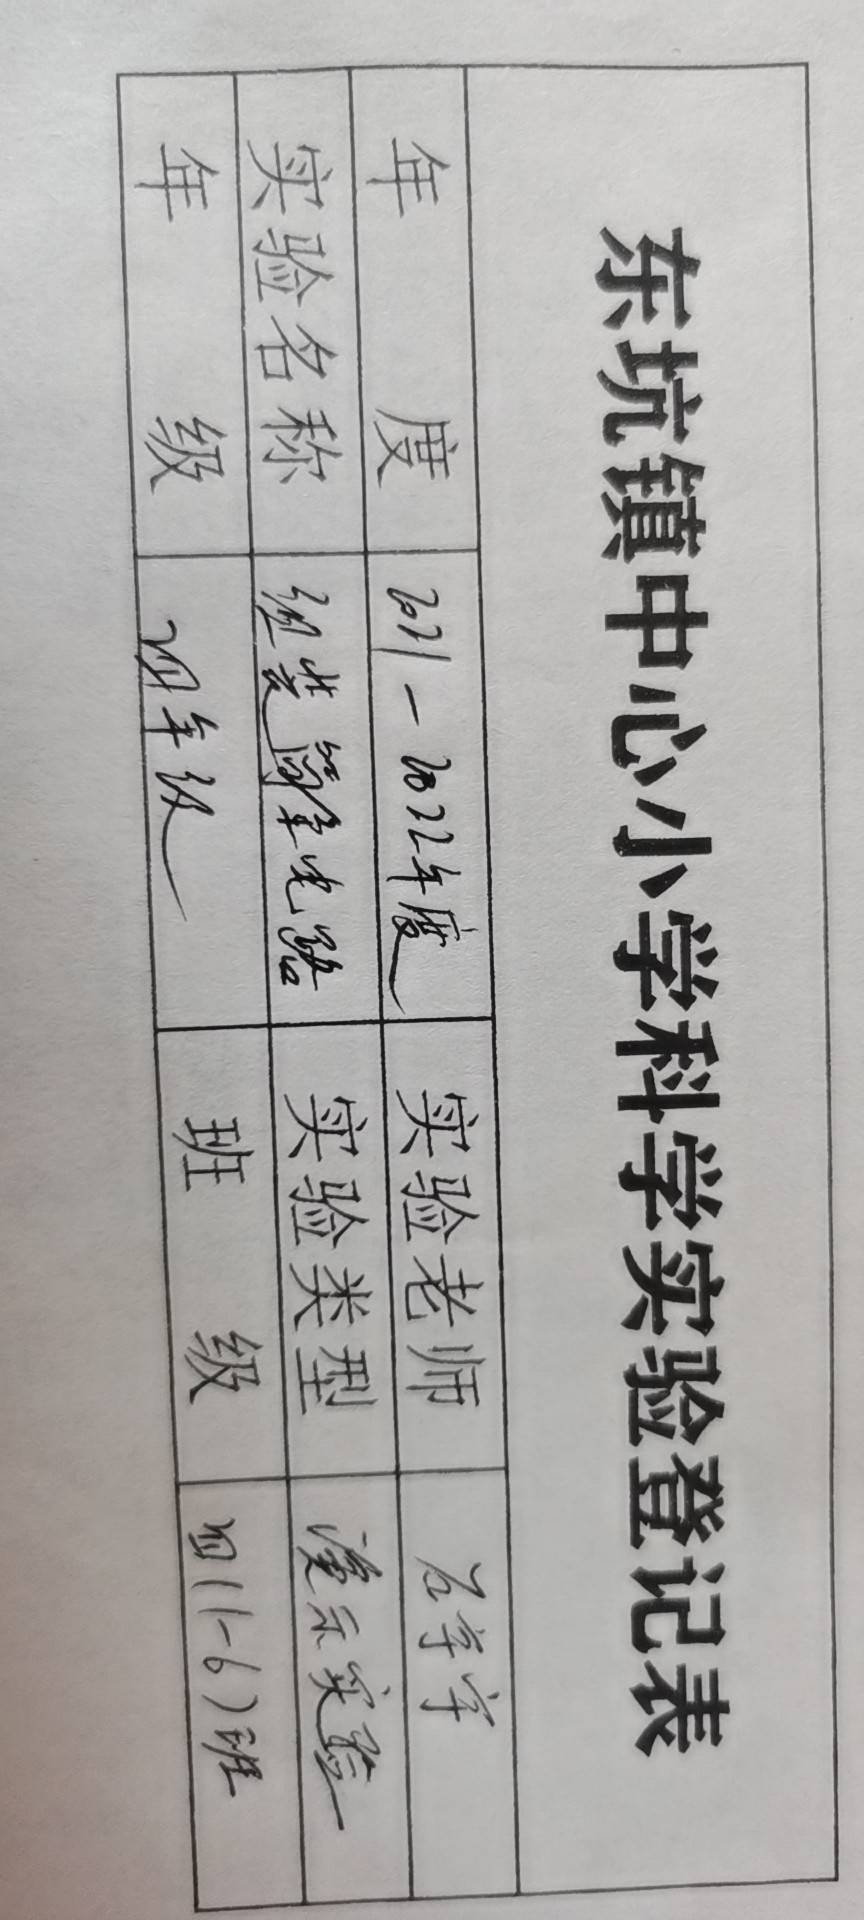 东坑镇中心小学科学实验登记表
年度 2021-2022年度 实验老师
实验名称 组装简单电路 实验类型 演示实验
年级 四年级 班级 四(1-6)班